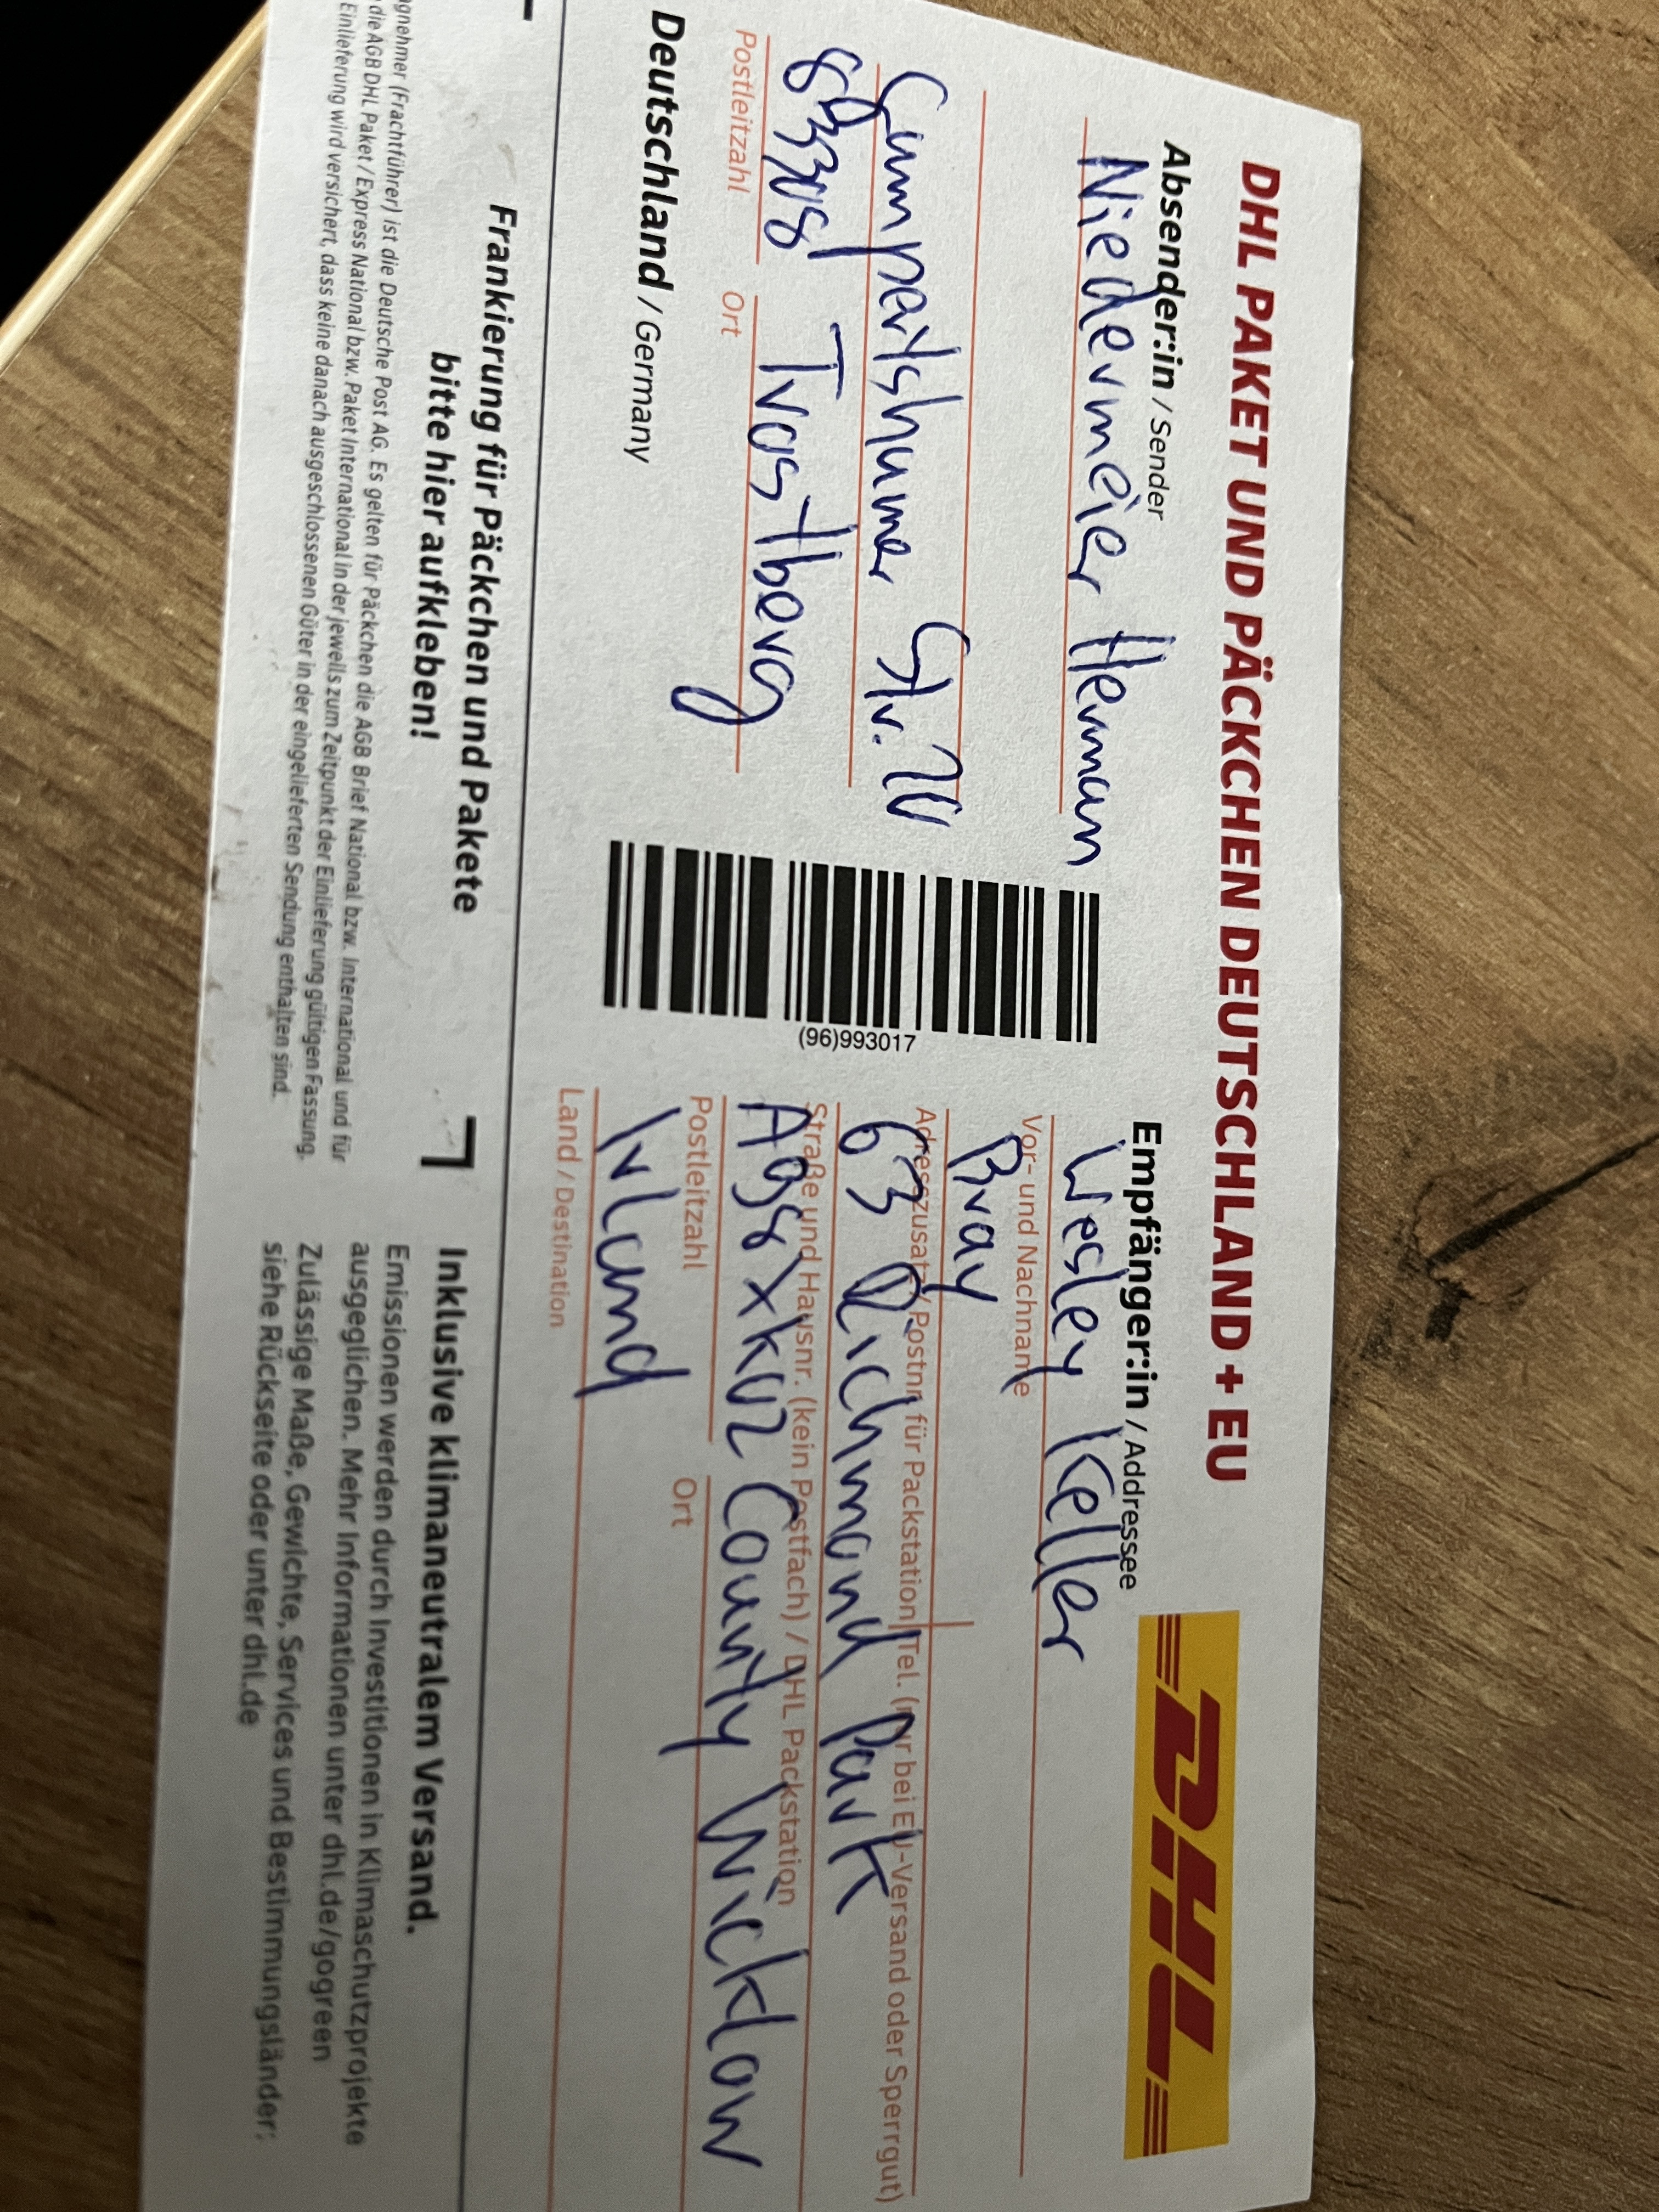 DHL PAKET UND PÄCKCHEN DEUTSCHLAND + EU
DHL
Absender:in / Sender
Niedermeier Hermann
Gumpertshamer Str.
83308 Trostberg
Postleitzahl Ort
Deutschland / Germany
(96)993017
Empfänger:in / Addressee
Wesley Keller
Vor- und Nachname
Bray
Adresszusatz / Postnr. für Packstation Tel. (nur bei EU-Versand oder Sperrgut)
63 Richmond Park
Straße und Hausnr. (kein Postfach) / DHL Packstation
A98 XK02 County Wicklow
Postleitzahl Ort
Irland
Land / Destination
Frankierung für Päckchen und Pakete
bitte hier aufkleben!
gnehmer (Frachtführer) ist die Deutsche Post AG. Es gelten für Päckchen die AGB Brief National bzw. International und für
die AGB DHL Paket / Express National bzw. Paket International in der jeweils zum Zeitpunkt der Einlieferung gültigen Fassung.
Einlieferung wird versichert, dass keine danach ausgeschlossenen Güter in der eingelieferten Sendung enthalten sind.
Inklusive klimaneutralem Versand.
Emissionen werden durch Investitionen in Klimaschutzprojekte
ausgeglichen. Mehr Informationen unter dhl.de/gogreen
Zulässige Maße, Gewichte, Services und Bestimmungsländer:
siehe Rückseite oder unter dhl.de